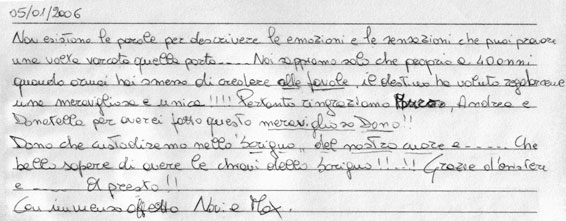 05/01/2006
Non esistono le parole per descrivere le emozioni e le sensazioni che puoi provare
una volta varcata quella porta...... Noi sappiamo solo che proprio a 40 anni
quando ormai hai smesso di credere alle favole, il destino ha voluto regalarcene
una meravigliosa e unica!!!! Pertanto ringraziamo Andrea e
Donatella per averci fatto questo meraviglioso Dono!!
Dono che custodiremo nello "scrigno" del nostro cuore e ...... Che
bello sapere di avere le chiavi dello scrigno!!!..!! Grazie d'esistere
e ...... A presto!!
Con immenso affetto Novi e Max.